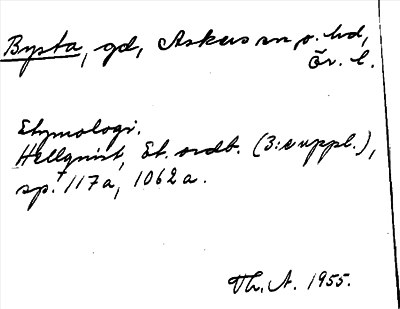 Bysta, gd, Askers sn o. hd,
Ör. l.
Etymologi.
Hellquist, Et. ordb. (3:e uppl.),
sp. 117a, 1062a.
Th. A. 1955.